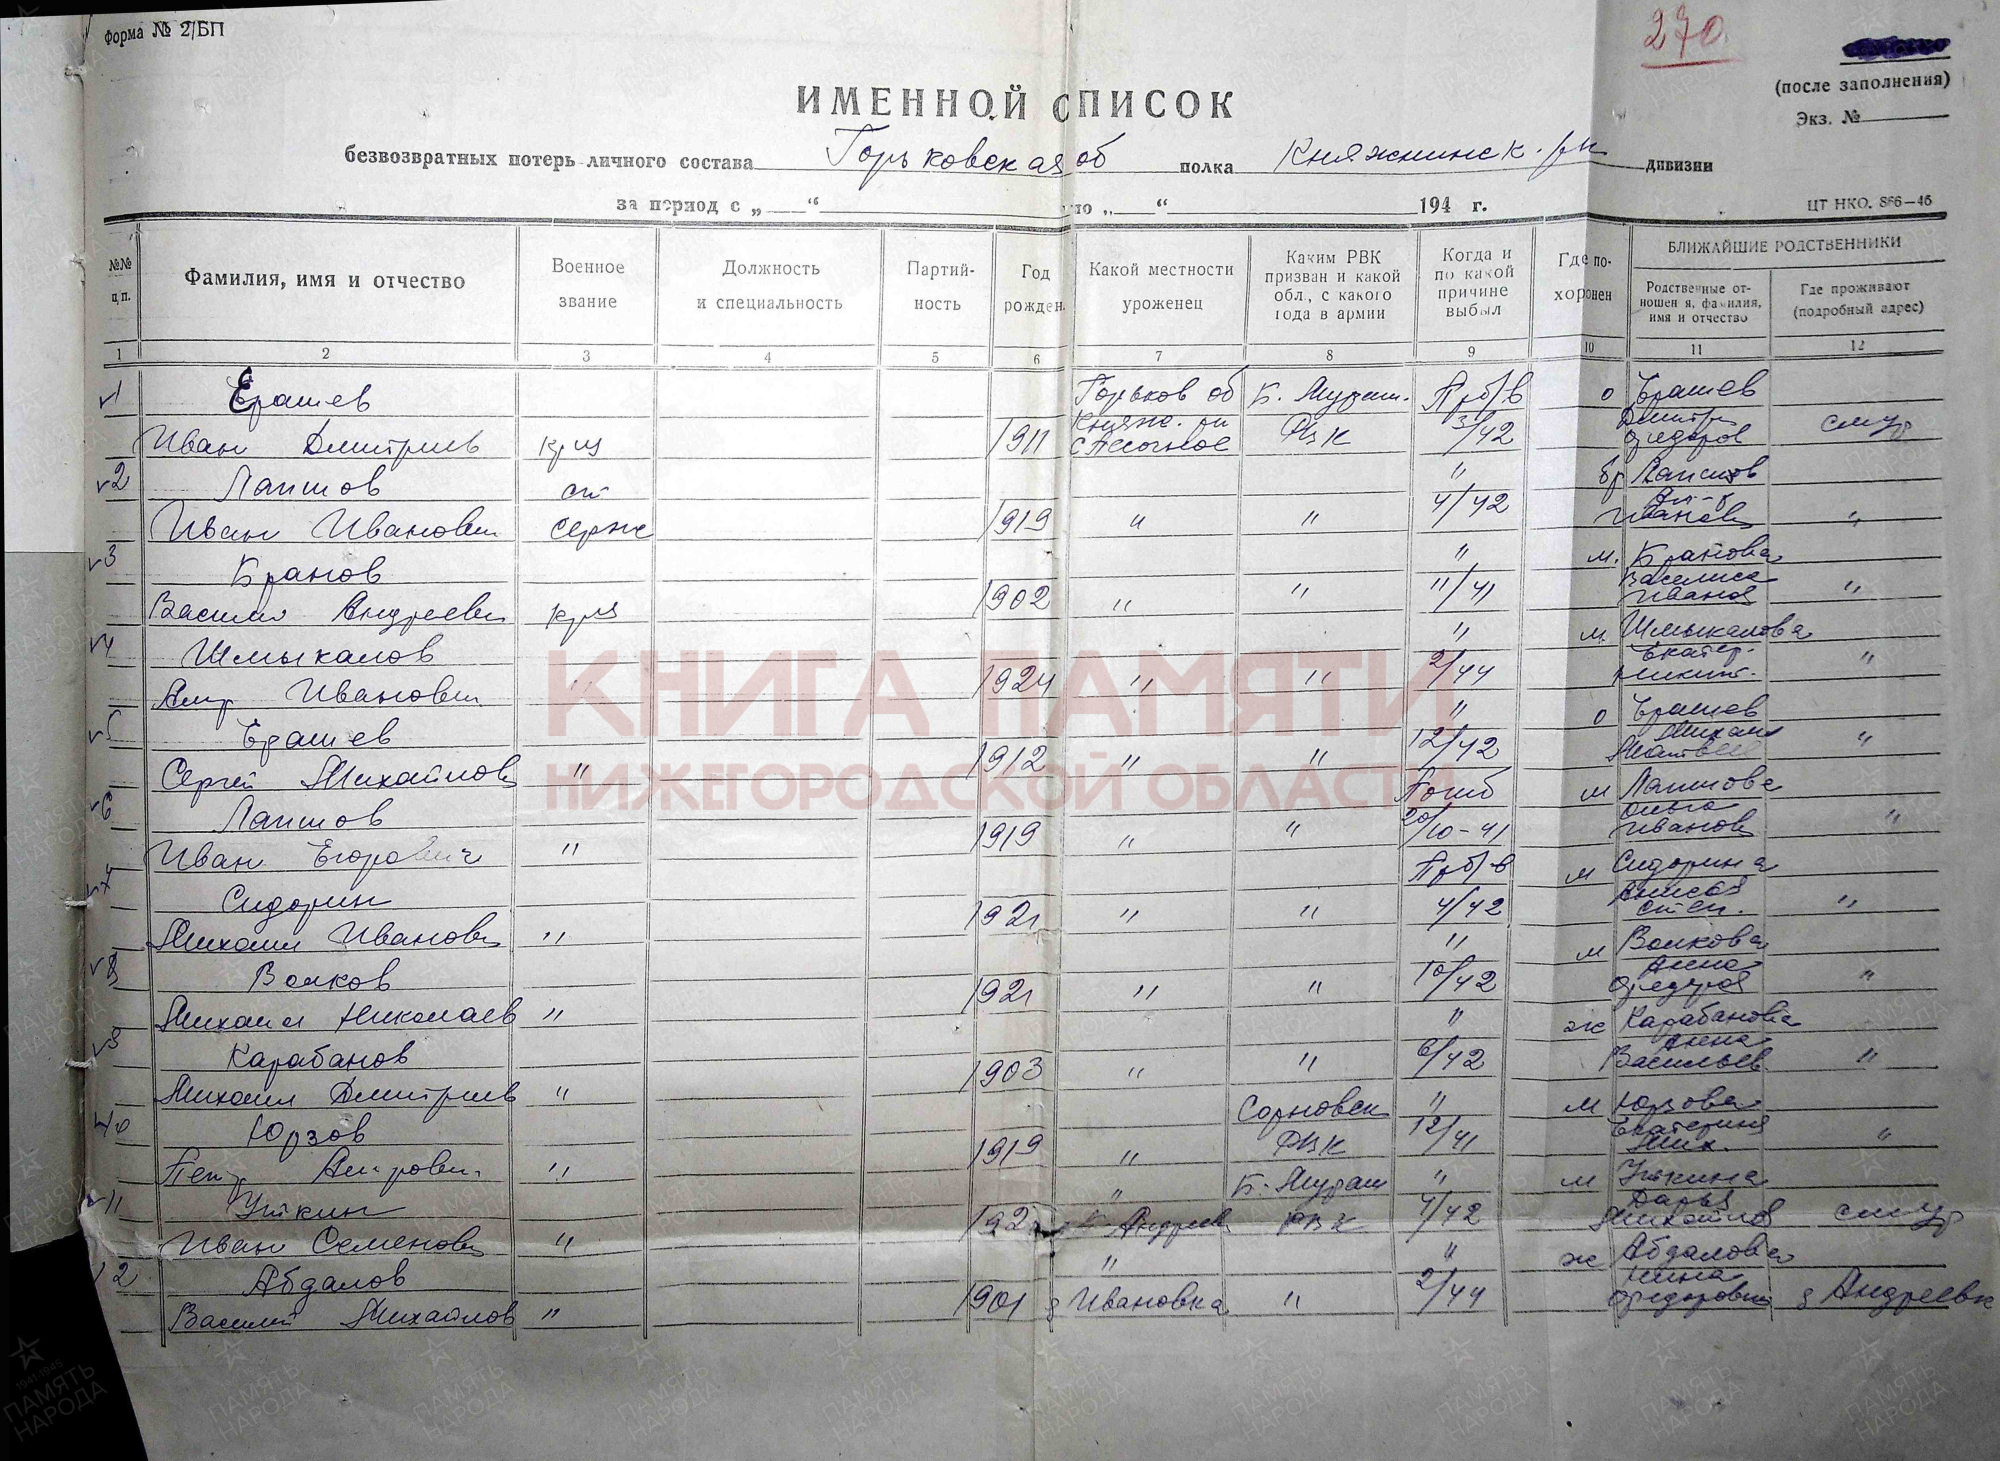 Форма № 2/БП
270
(после заполнения)
Экз. №
ИМЕННОЙ СПИСОК
безвозвратных потерь личного состава Горьковская об полка Княжнинск. рн дивизии
за период с „ “ по „ “ 194 г.
ЦТ НКО. 866—46
№№ п.п.
Фамилия, имя и отчество
Военное звание
Должность и специальность
Партий-ность
Год рожден.
Какой местности уроженец
Каким РВК призван и какой обл., с какого года в армии
Когда и по какой причине выбыл
Где по-хоронен
БЛИЖАЙШИЕ РОДСТВЕННИКИ
Родственные от-ношен я, фамилия, имя и отчество
Где проживают (подробный адрес)
1 2 3 4 5 6 7 8 9 10 11 12
1 Ерашев Горьков об Б. Мураш. Пр б/в о Ерашев
Иван Дмитриев крц 1911 Княжн. рн с Песочное РВК 3/42 Дмитр Федоров
2 Лапшов ст " бр Лапшов
Иван Иванович серж 1919 " " 4/42 Иванов "
3 Кранов " м. Кранова
Василий Андреевич крц 1902 " " 11/41 Василиса Иванов "
4 Шмыкалов " м Шмыкалова
Алкр Иванович " 1924 " " 2/44 Екатер. Никит. "
5 Ерашев " о Ерашев
Сергей Михайлов " 1912 " " 12/42 Михаил Матвее "
6 Лапшов Погиб м Лапшова
Иван Егорович " 1919 " " 20/10-41 Ольга Иванов "
7 Сидорин Пр б/в м Сидорина
Михаил Иванович " 1921 " " 4/42 Анисья Степ. "
8 Волков " м Волкова
Михаил Николаев " 1921 " " 10/42 Анна Федоров "
9 Карабанов " ж Карабанова
Михаил Дмитриев " 1903 " " 6/42 Анна Васильев "
10 Юрзов Сормовск " м Юрзова
Петр " 1919 " РВК 12/41 Екатерина Мих. "
11 Уткин " Б. Мураш " м Уткина
Иван Семенович " Андреев РВК 4/42 Дарья Михайлов
12 Абдалов " " ж Абдалова
Василий Михайлов " 1901 д Ивановка " 2/44 Нина Федоровна д Андреевк
КНИГА ПАМЯТИ
НИЖЕГОРОДСКОЙ ОБЛАСТИ
1941-1945
ПАМЯТЬ НАРОДА